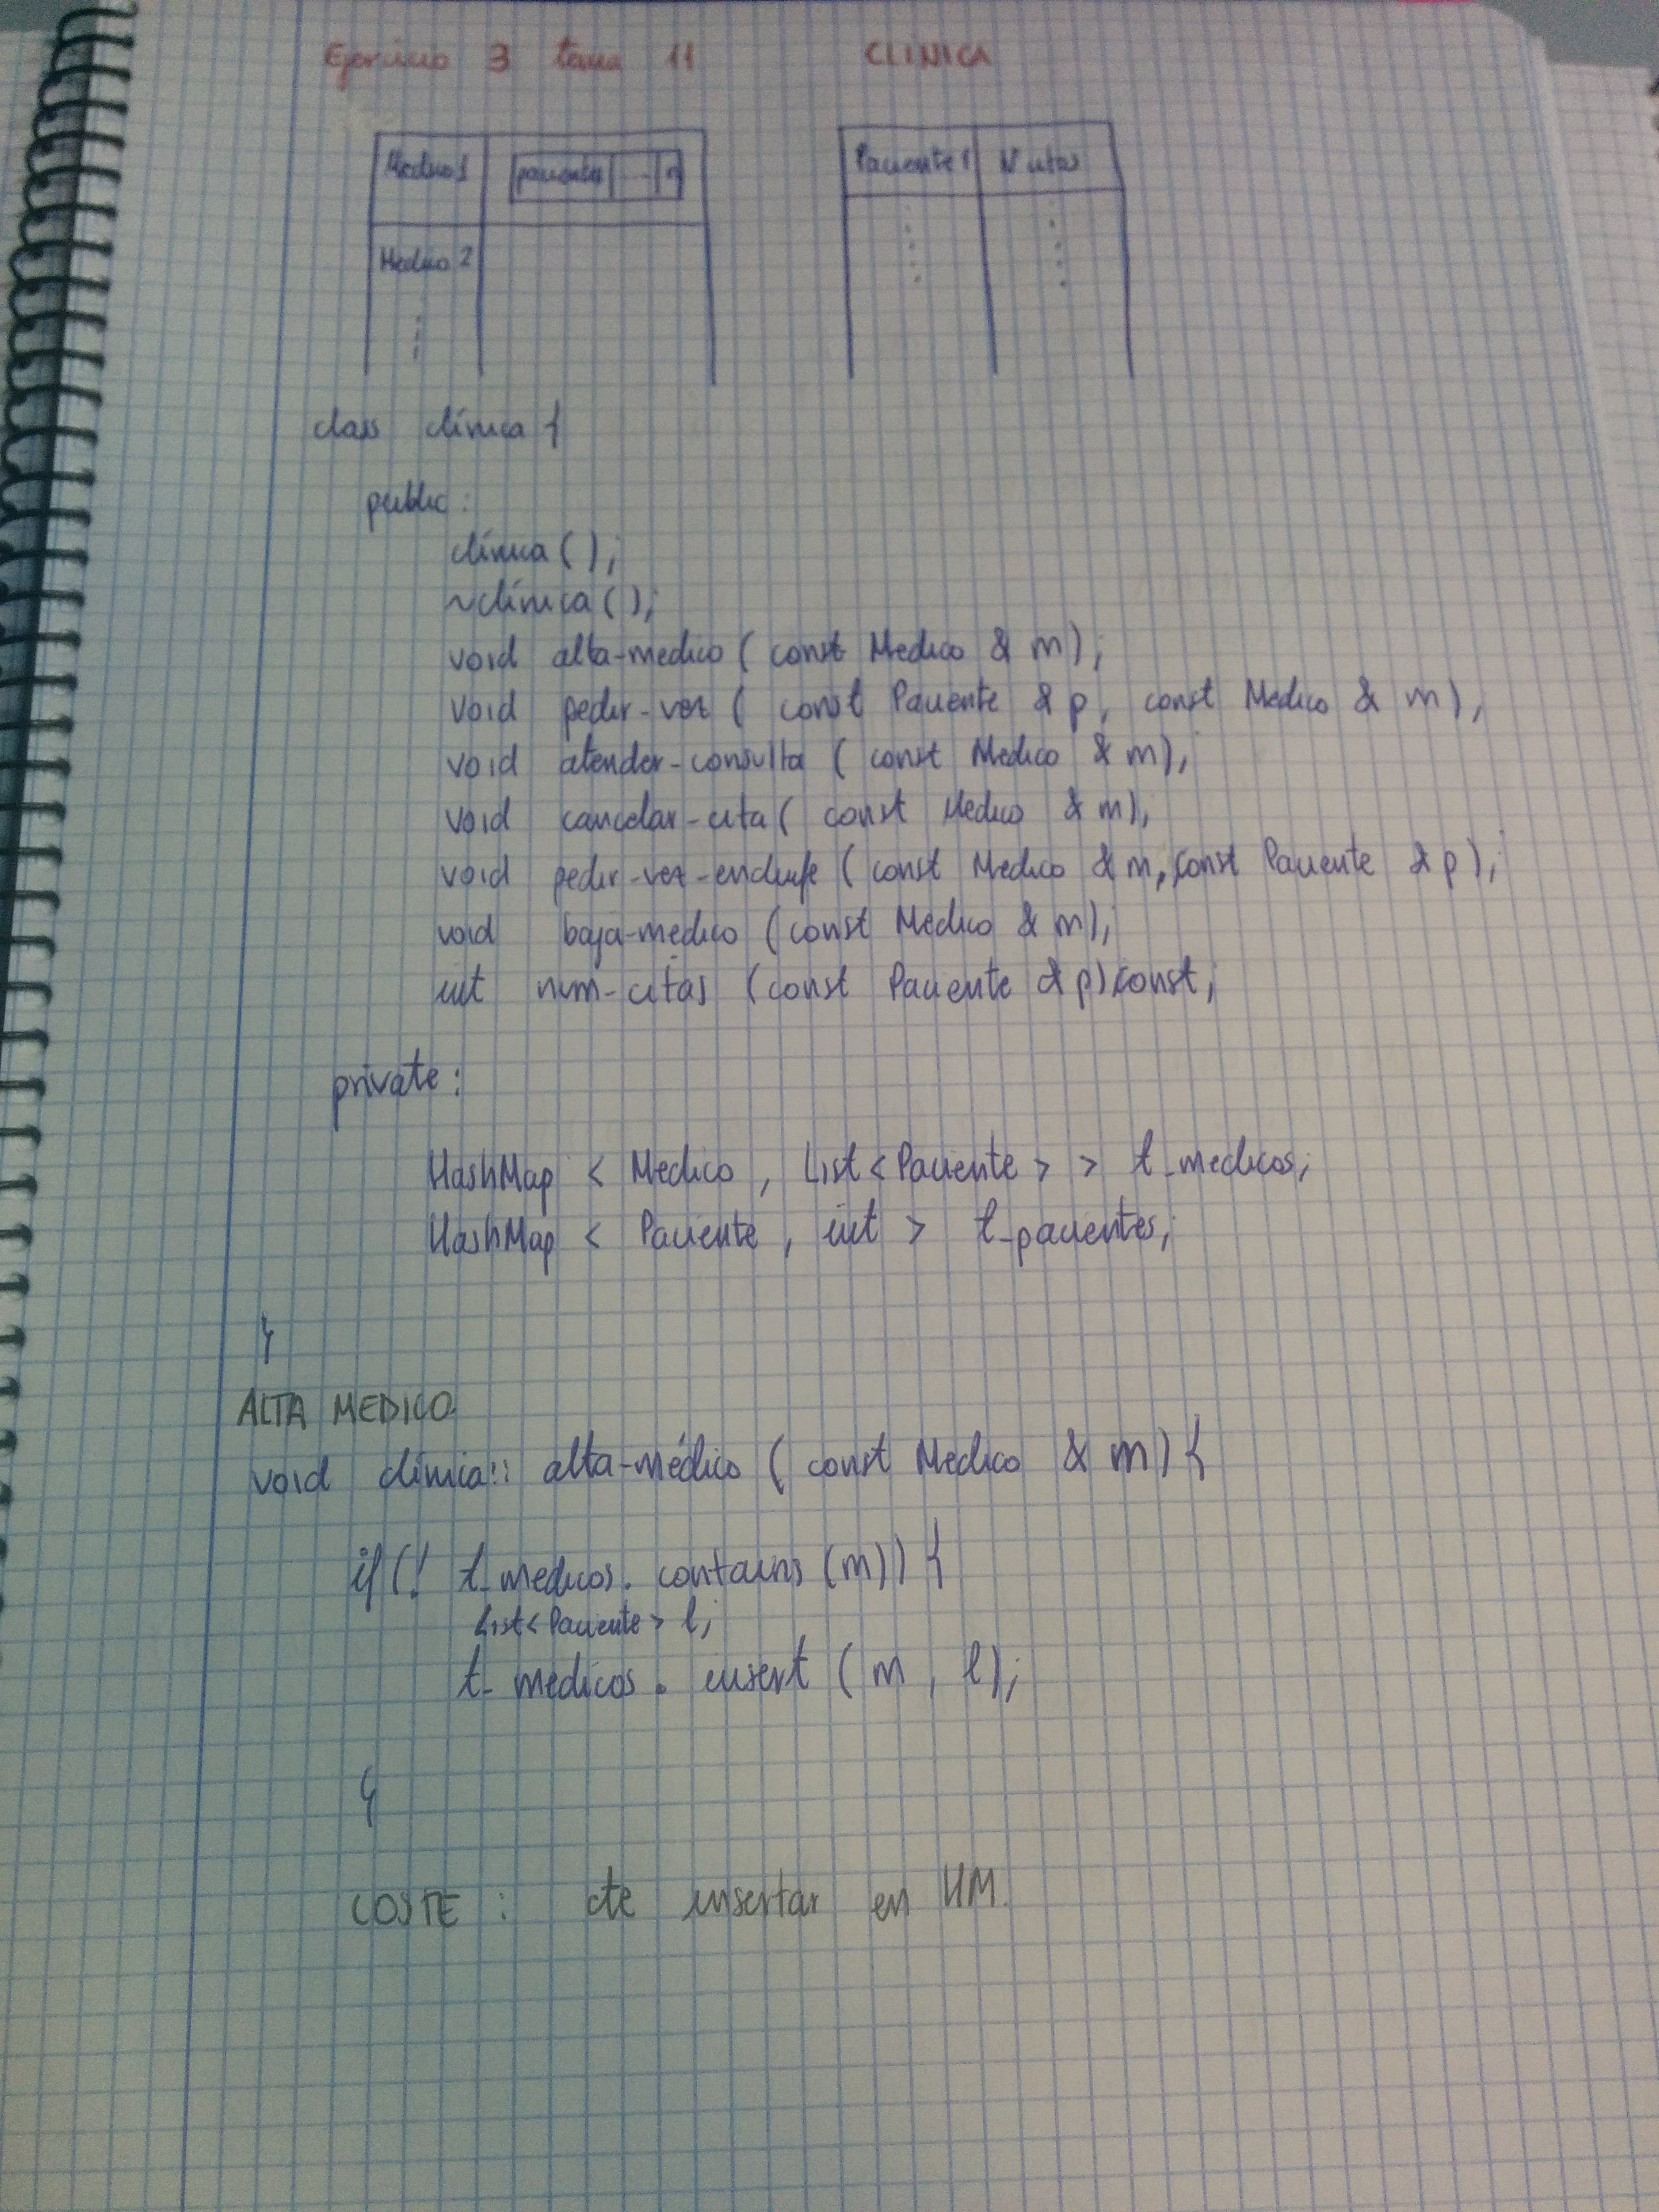 Ejercicio 3 tema 11 CLINICA
Medico 1 pacientes ... n Paciente 1 Nº citas
Medico 2
class clínica {
public:
clínica ( );
~clínica ( );
void alta-medico ( const Medico & m );
void pedir-vez ( const Paciente & p, const Medico & m );
void atender-consulta ( const Medico & m );
void cancelar-cita ( const Medico & m );
void pedir-vez-enchufe ( const Medico & m, const Paciente & p );
void baja-medico ( const Medico & m );
int num-citas ( const Paciente & p ) const;
private:
HashMap < Medico , List < Paciente > > t_medicos;
HashMap < Paciente , int > t_pacientes;
}
ALTA MEDICO
void clínica:: alta-médico ( const Medico & m ) {
if (! t_medicos. contains (m)) {
List < Paciente > l;
t_medicos. insert ( m , l );
}
COSTE : cte insertar en HM.